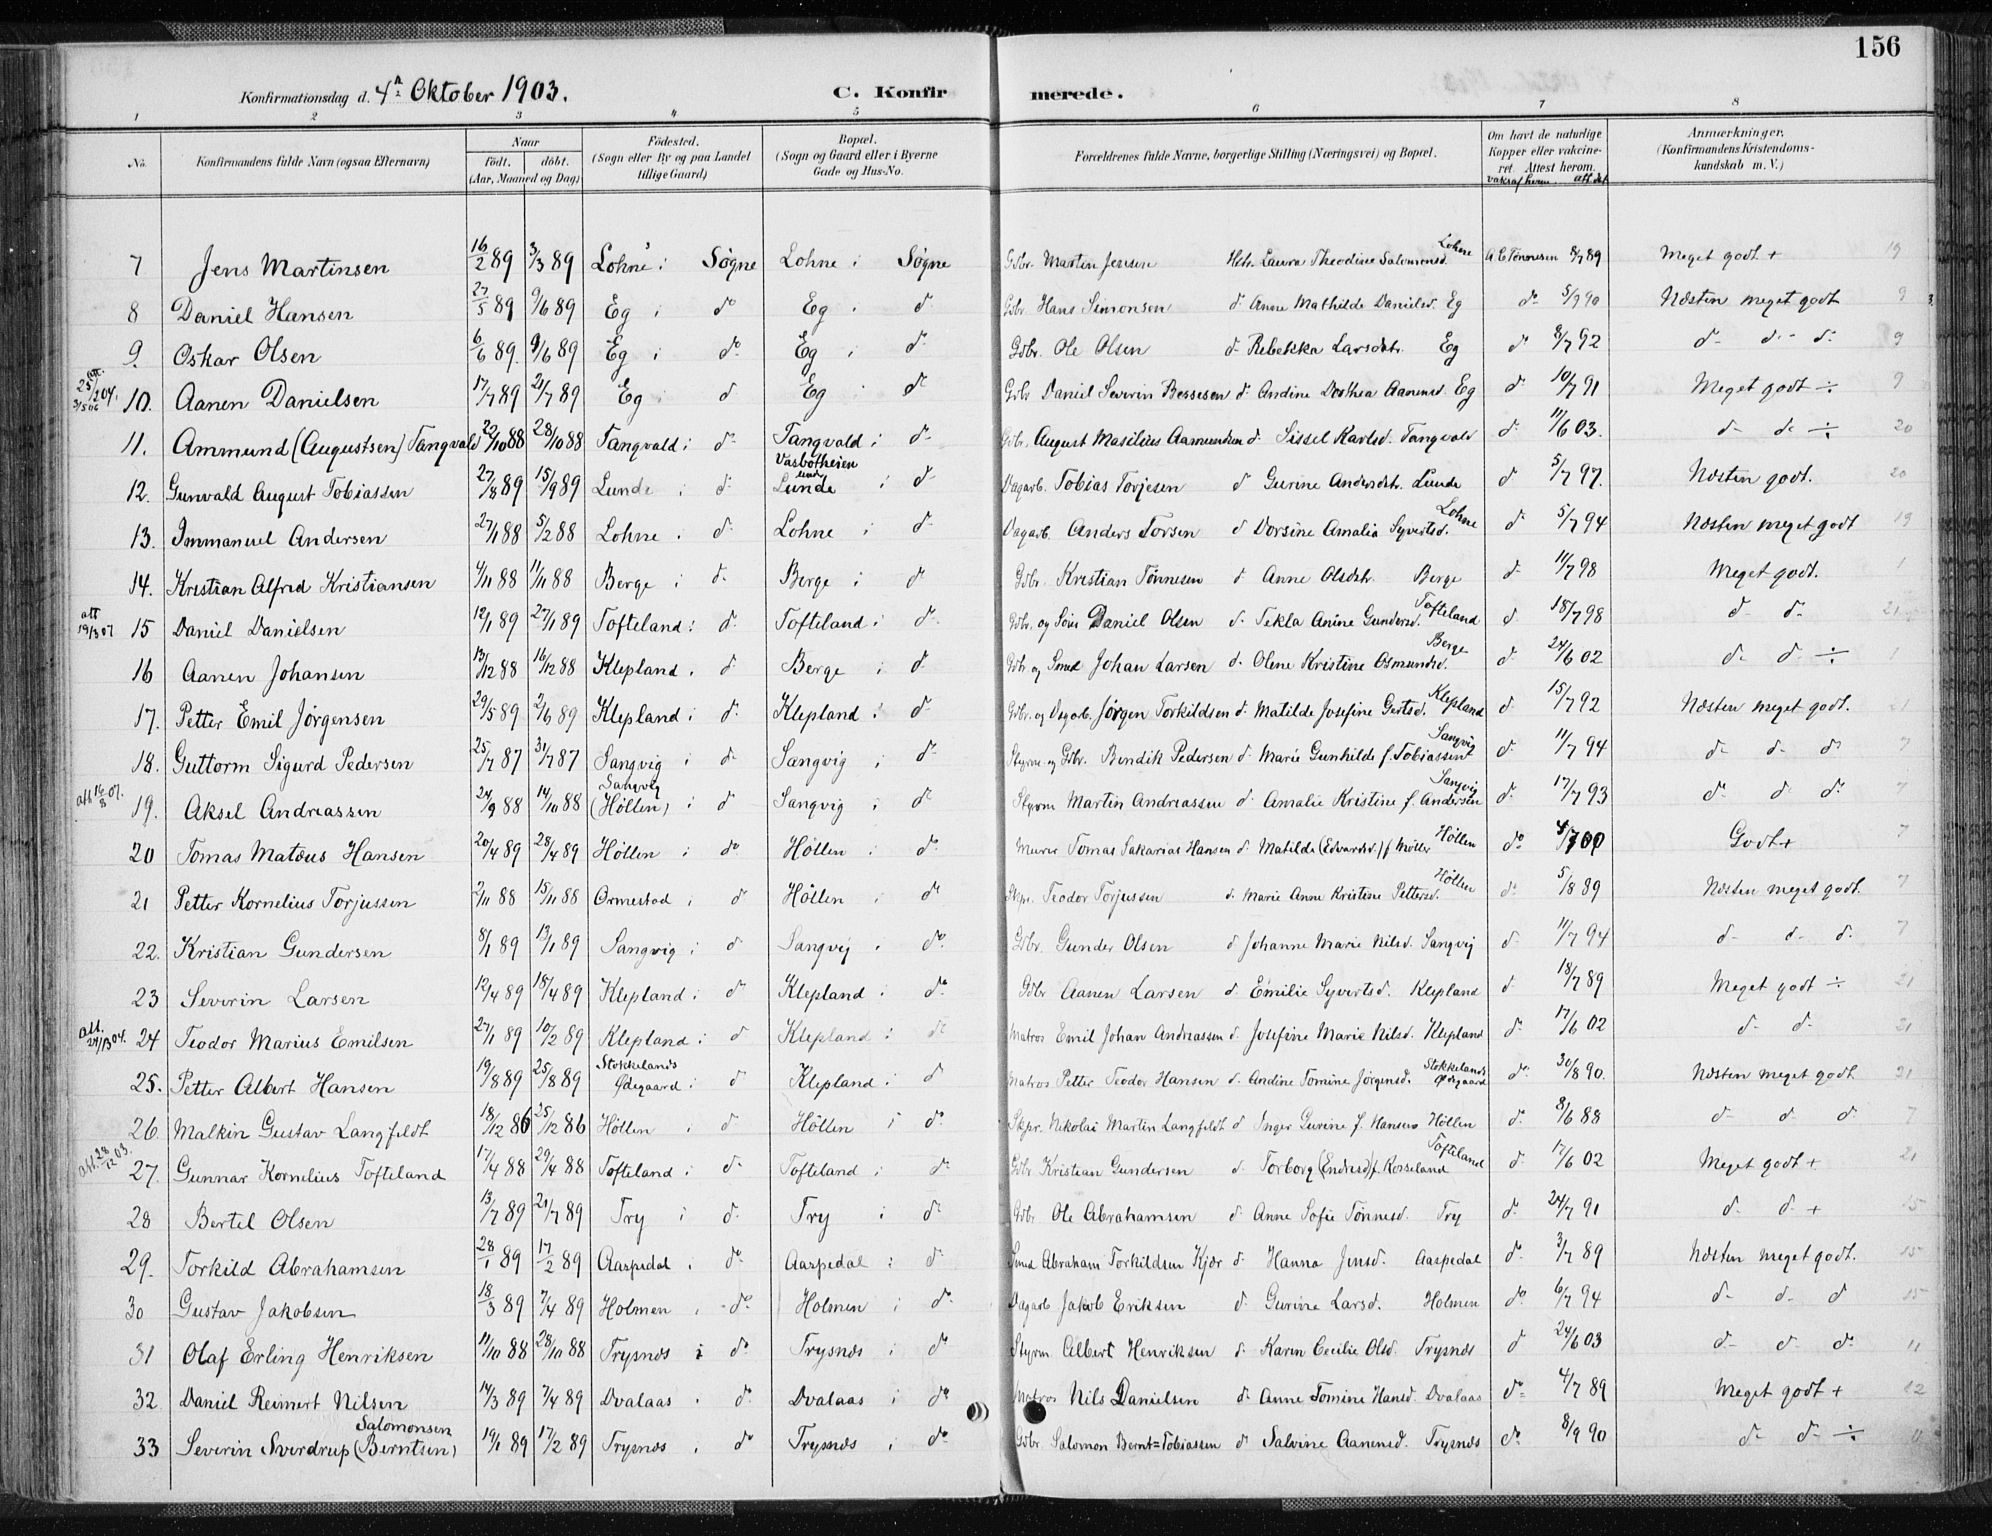 156
Konfirmationsdag d. 4de Oktober 1903. C. Konfir merede.
1 2 3 4 5 6 7 8
No. Konfirmandens fulde Navn (ogsaa Efternavn) Naar født. døbt. (Aar, Maaned og Dag) Fødested. (Sogn eller By og paa Landet tillige Gaard) Bopæl. (Sogn og Gaard eller i Byerne Gade og Hus-No. Forældrenes fulde Navne, borgerlige Stilling (Næringsvei) og Bopæl. Om havt de naturlige Kopper eller vakcineret. Attest herom. vaks af hvem. att. dat. Anmærkninger. (Konfirmandens Kristendomskundskab m. V.)
7 Jens Martinsen 16/2 89 3/3 89 Lohne i Søgne Lohne i Søgne Gdbr. Martin Jensen Hstr. Laura Theodine Salomonsd. Lohne A E Tønnesen 8/7 89 Meget godt + 19
8 Daniel Hansen 27/5 89 9/6 89 Eg i do Eg i do Gdbr. Hans Simonsen do Anne Mathilde Danielsd. Eg do 5/9 90 Næsten meget godt 9
9. Oskar Olsen 6/6 89. 9/6 89 Eg i do Eg i do Gdbr. Ole Olsen do Rebekka Larsdtr. Eg do 8/7 92 do do do 9
10. Aanen Danielsen 17/7 89 21/7 89 Eg i do Eg i do Gdbr Daniel Severin Bessesen do Andine Dorthea Aanensd. Eg do 10/7 91 Meget godt ÷ 9
11. Ammund (Augustsen) Tangvald 22/10 88 28/10 88 Tangvald i do Tangvald i do Gdbr. August Masilius Aamundsen do Sissel Karlsd. Tangvald do 11/6 03. do do ÷ 20
12. Gunvald August Tobiassen 27/8 89 15/9 89 Lunde i do Vasbotheien und. Lunde i do Dagarb. Tobias Torjesen do Gurine Andersdtr. Lunde do 5/7 97. Næsten godt. 20
13. Immanuel Andersen 27/1 88 5/2 88 Lohne i do Lohne i do Dagarb. Anders Torsen do Dorsine Amalia Syvertsd. Lohne do 5/7 94 Næsten meget godt 19
14. Kristian Alfred Kristiansen 4/11 88 11/11 88 Berge i do Berge i do Gdbr. Kristian Tønnesen do Anne Olsdtr. Berge do 11/7 98 Meget godt. 1
att 19/3 07 15 Daniel Danielsen 12/1 89 27/1 89 Tofteland i do Tofteland i do Gdbr. og Daniel Olsen do Tekla Anine Gundersd. Tofteland do 18/7 98 do do 21
16 Aanen Johansen 13/12 88 16/12 88 Klepland i do Berge i do Gdbr og Smed Johan Larsen do Olene Kristine Osmundsd. Berge do 24/6 02 do do ÷ 1
17. Petter Emil Jørgensen 29/5 89 2/6 89 Klepland i do Klepland i do Gdbr. og Dagarb. Jørgen Torkildsen do Matilde Josefine Gertsd. Klepland do 15/7 92 Næsten meget godt. 21
18. Guttorm Sigurd Pedersen 25/7 87 31/7 87 Sangvig i do Sangvig i do Styrm. og Gdbr. Bendik Pedersen do Marie Gunhilde f. Tobiassen Sangvig do 11/7 94 do do do 7
att 16/8 07. 19. Aksel Andreassen 24/9 88 14/10 88 Sangvig (Höllen) i do Sangvig i do Styrm Martin Andreassen do Amalie Kristine f. Andersen Sangvig do 17/7 93 do do do 7
20 Tomas Matæus Hansen 20/4 89 28/4 89 Höllen i do Höllen i do Murer Tomas Sakarias Hansen do Matilde (Edvardsd.) f Møller Höllen do 4/7 00 Godt + 7
21 Petter Kornelius Torjussen 2/11 88 15/11 88 Ormestad i do Höllen i do Skpr. Teodor Torjussen do Marie Anne Kristine Pettersd. Höllen do 5/8 89 Næsten meget godt. 7
22. Kristian Gundersen 8/1 89 13/1 89 Sangvig i do Sangvig i do Gdbr. Gunder Olsen do Johanne Marie Nilsd. Sangvig do 11/7 94 do do do 7
23 Severin Larsen 12/4 89 18/4 89 Klepland i do Klepland i do Gdbr Aanen Larsen do Emilie Syvertsd. Klepland do 18/7 89 Meget godt ÷ 21
att. 24 Teodor Marius Emilsen 27/1 89 10/2 89 Klepland i do Klepland i do Matros Emil Johan Andreassen do Josefine Marie Nilsd. Klepland do 17/6 02 do do 21
25. Petter Albert Hansen 19/8 89 25/8 89 Stokkelands Ødegaard i do Klepland i do Matros Petter Teodor Hansen do Andine Tomine Jørgensd. Stokkelands Ødegaard do 30/8 90. Næsten meget godt 21
26. Malkin Gustav Langfeldt 18/12 86 25/12 86 Höllen i do Höllen i do Skpr. Nikolai Martin Langfeldt do Inger Gurine f. Hansen Höllen do 8/6 88 do do do 7
att. 28/12 03. 27. Gunnar Kornelius Tofteland 17/4 88 29/4 88 Tofteland i do Tofteland i do Gdbr Kristian Gundersen do Torborg (Endresd) f. Rosseland Tofteland do 17/6 02 Meget godt + 21
28 Bertel Olsen 13/7 89 21/7 89 Try i do Try i do Gdbr Ole Abrahamsen do Anne Sofie Tønnesd. Try do 24/7 91 do do + 15
29. Torkild Abrahamsen 28/1 89 17/2 89 Aaspedal i do Aaspedal i do Smed Abraham Torkildsen Kjær do Hanna Jensd. Aaspedal do 3/7 89 Næsten meget godt. 15
30 Gustav Jakobsen 18/3 89 7/4 89 Holmen i do Holmen i do Dagarb Jakob Eriksen do Gurine Larsd. Holmen do 6/7 94 do do do 15
31 Olaf Erling Henriksen 11/10 88 28/10 88 Trysnes i do Trysnes i do Styrm Albert Henriksen do Karen Cecilie Olsd. Trysnes do 24/6 03 do do do 11
32 Daniel Reimert Nilsen 14/3 89 7/4 89 Dvalaas i do Dvalaas i do Matros Nils Danielsen do Anne Tomine Hansd. Dvalaas do 4/7 89 Meget godt + 12
33 Severin Sverdrup Salomonsen (Berntsen) 19/1 89 17/2 89 Trysnes i do Trysnes i do Gdbr. Salomon Bernt=Tobiassen do Salvine Aanensd. Trysnes do 8/9 90 do do ÷ 11